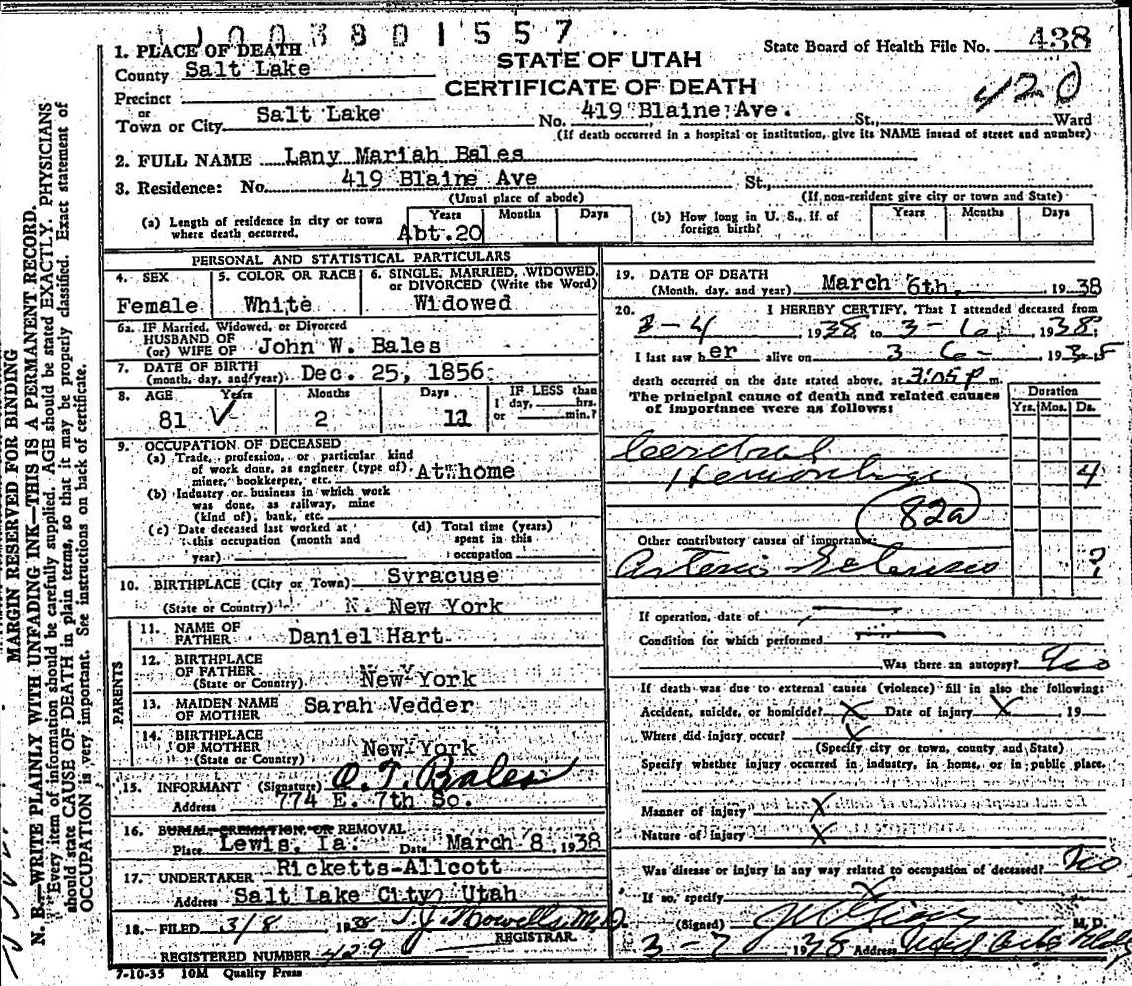 1003801557
1. PLACE OF DEATH
County Salt Lake
Precinct
or
Town or City Salt Lake
STATE OF UTAH
CERTIFICATE OF DEATH
State Board of Health File No. 438
420
No. 419 Blaine Ave. St., Ward
(If death occurred in a hospital or institution, give its NAME insead of street and number)
2. FULL NAME Lany Mariah Bales
3. Residence: No. 419 Blaine Ave St.,
(Usual place of abode) (If non-resident give city or town and State)
(a) Length of residence in city or town where death occurred. Years Abt.20 Months Days
(b) How long in U. S., if of foreign birth? Years Months Days
PERSONAL AND STATISTICAL PARTICULARS
4. SEX Female
5. COLOR OR RACE White
6. SINGLE, MARRIED, WIDOWED, or DIVORCED (Write the Word) Widowed
6a. IF Married, Widowed, or Divorced
HUSBAND OF
(or) WIFE OF John W. Bales
7. DATE OF BIRTH
(month, day, and year) Dec. 25, 1856
8. AGE Years 81 Months 2 Days 11
IF LESS than
1 day, hrs.
or min.?
9. OCCUPATION OF DECEASED
(a) Trade, profession, or particular kind
of work done, as engineer (type of)
miner, bookkeeper, etc. At home
(b) Industry or business in which work
was done, as railway, mine
(kind of); bank, etc.
(c) Date deceased last worked at
this occupation (month and
year)
(d) Total time (years)
spent in this
occupation
10. BIRTHPLACE (City or Town) Syracuse
(State or Country) N. New York
PARENTS
11. NAME OF
FATHER Daniel Hart
12. BIRTHPLACE
OF FATHER
(State or Country) New York
13. MAIDEN NAME
OF MOTHER Sarah Vedder
14. BIRTHPLACE
OF MOTHER
(State or Country) New York
15. INFORMANT (Signature) O. T. Bales
Address 774 E. 7th So.
16. BURIAL, CREMATION, OR REMOVAL
Place Lewis, Ia. Date March 8, 1938
17. UNDERTAKER Ricketts-Allcott
Address Salt Lake City Utah
18. FILED 3/8 1938 T. J. Howells, M.D.
REGISTRAR.
REGISTERED NUMBER 429
7-10-35 10M Quality Press
19. DATE OF DEATH
(Month, day, and year) March 6th, 1938
20. I HEREBY CERTIFY, That I attended deceased from
3-4 1938 to 3-6- 1938;
I last saw her alive on 3 6- 193
death occurred on the date stated above, at 3:05 p m.
The principal cause of death and related causes
of importance were as follows:
Duration
Yrs. Mos. Ds.
Cerebral
Hemorrhage 4
82a
Other contributory causes of importance:
Arterio Sclerosis ?
If operation, date of
Condition for which performed
Was there an autopsy? No
If death was due to external causes (violence) fill in also the following:
Accident, suicide, or homicide? X Date of injury X 19
Where did injury occur? X
(Specify city or town, county and State)
Specify whether injury occurred in industry, in home, or in public place.
Manner of injury X
Nature of injury X
Was disease or injury in any way related to occupation of deceased? No
If so, specify X
(Signed) M. D.
3-7 1938 Address
MARGIN RESERVED FOR BINDING
N. B.—WRITE PLAINLY WITH UNFADING INK—THIS IS A PERMANENT RECORD.
Every item of information should be carefully supplied. AGE should be stated EXACTLY. PHYSICIANS
should state CAUSE OF DEATH in plain terms, so that it may be properly classified. Exact statement of
OCCUPATION is very important. See instructions on back of certificate.